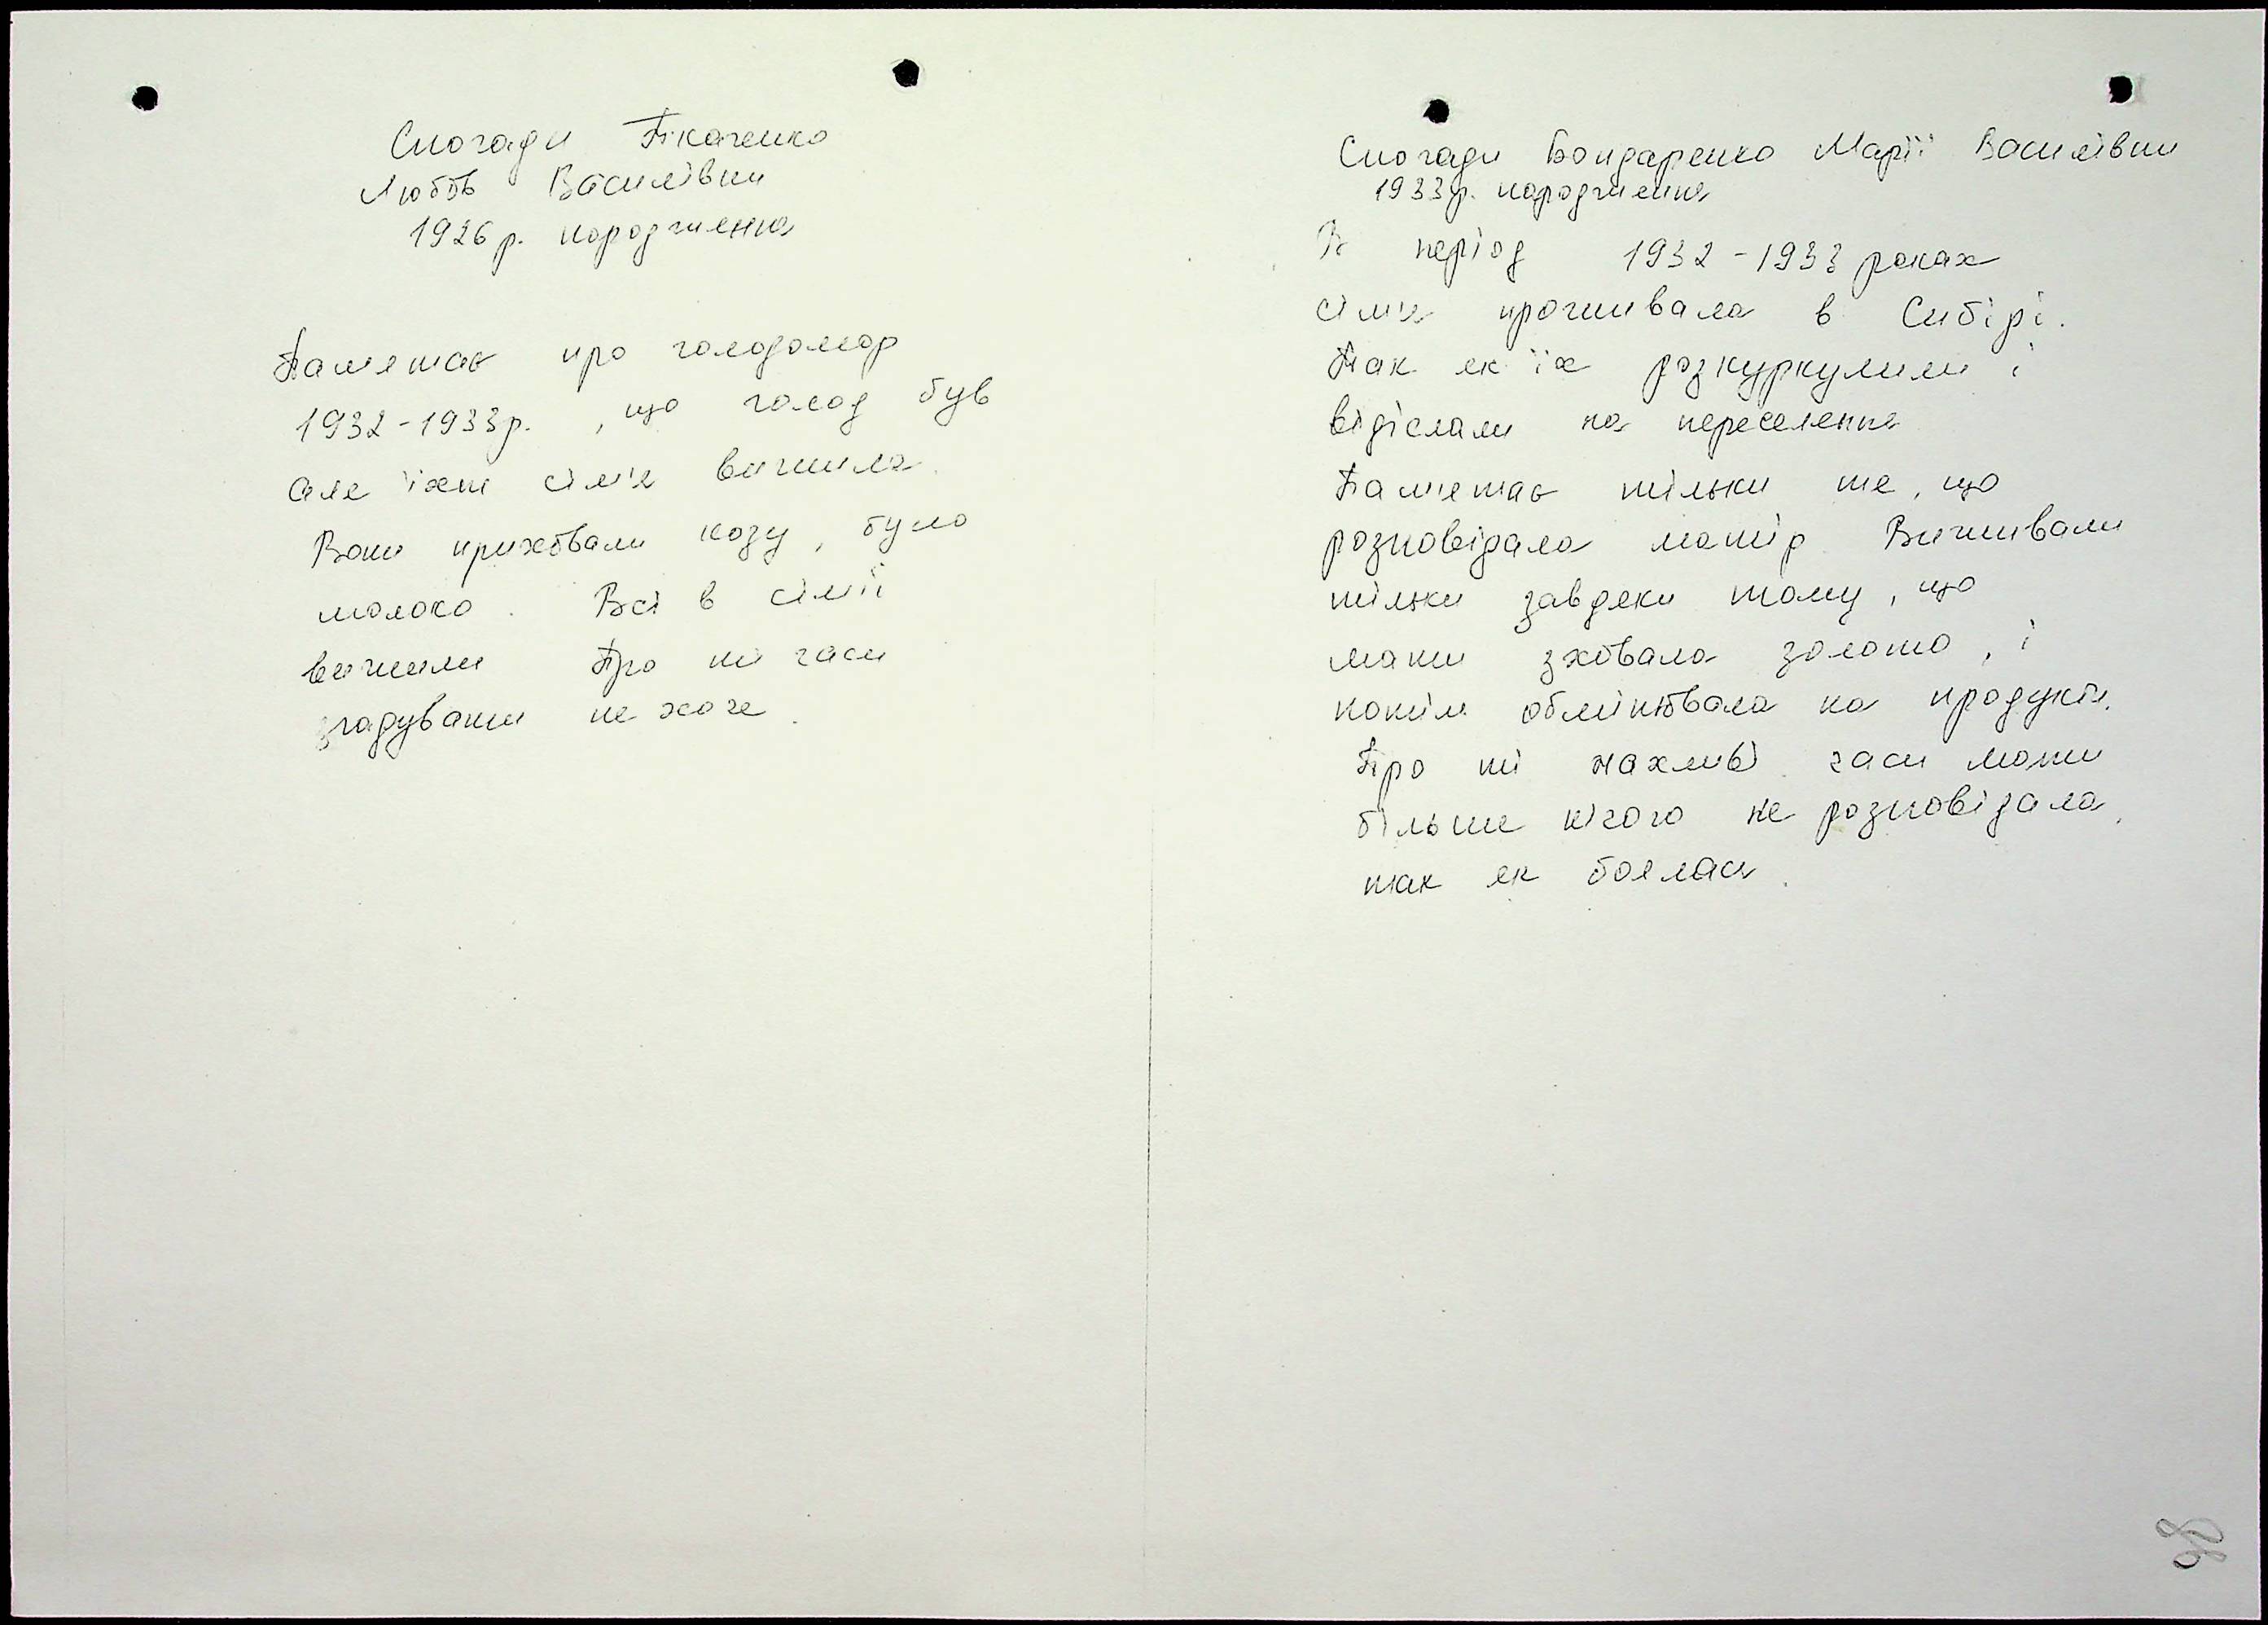 Спогади Ткаченко
Любов Василівни
1926 р. народження
Памятає про голодомор
1932-1933р. , що голод був
але їхня сім'я вижила.
Вони приховали козу, було
молоко. Всі в сім'ї
вижили Про ті часи
згадувати не хоче.
Спогади Бондаренко Марії Василівни
1933р. народження
В період 1932-1933 роках
сім'я проживала в Сибірі.
Так як їх розкуркулили і
відіслали на переселення
Пам'ятає тільки те, що
розповідала матір Виживали
тільки завдяки тому, що
мати зховала золото, і
потім обмінювала на продукти.
Про ті жахливі часи мати
більше нічого не розповідала,
так як боялась.
98